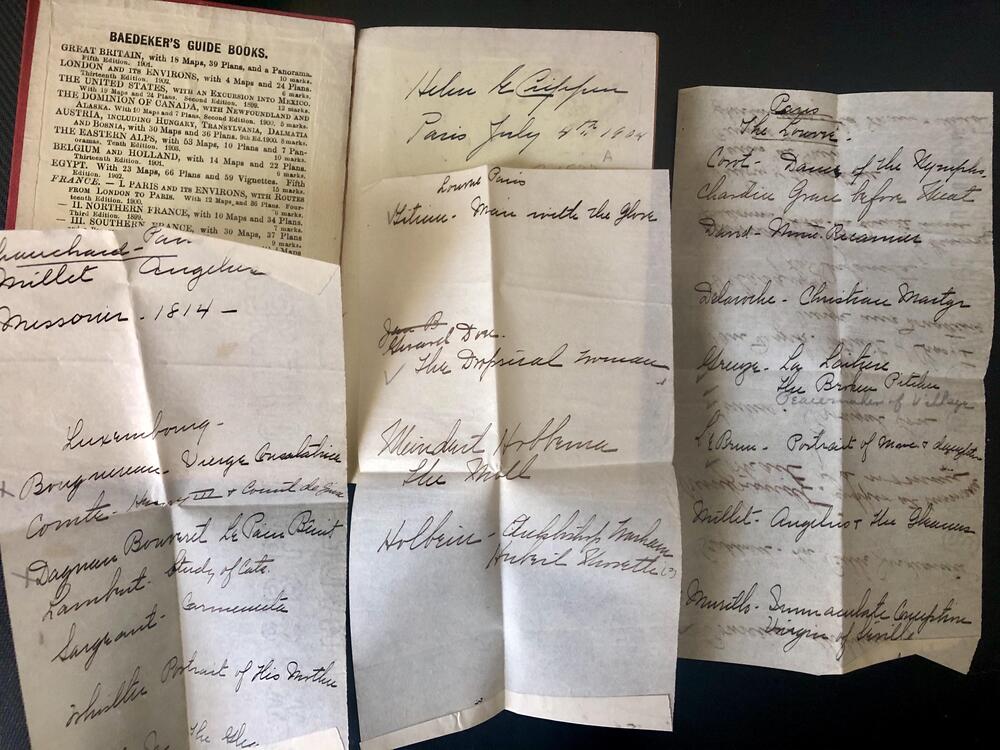 BAEDEKER'S GUIDE BOOKS.
GREAT BRITAIN, with 18 Maps, 39 Plans, and a Panorama.
Fifth Edition. 1901. 10 marks.
LONDON AND ITS ENVIRONS, with 4 Maps and 24 Plans.
Thirteenth Edition. 1902. 6 marks.
THE UNITED STATES, WITH AN EXCURSION INTO MEXICO.
With 19 Maps and 24 Plans. Second Edition. 1899. 12 marks.
THE DOMINION OF CANADA, WITH NEWFOUNDLAND AND
ALASKA. With 10 Maps and 7 Plans. Second Edition. 1900. 5 marks.
AUSTRIA, INCLUDING HUNGARY, TRANSYLVANIA, DALMATIA
AND BOSNIA, with 30 Maps and 36 Plans. 9th Ed. 1900. 8 marks.
THE EASTERN ALPS, with 53 Maps, 10 Plans and 7 Pan-
oramas. Tenth Edition. 1903. 10 marks.
BELGIUM AND HOLLAND, with 14 Maps and 22 Plans.
Thirteenth Edition. 1901. 6 marks.
EGYPT. With 23 Maps, 66 Plans and 59 Vignettes. Fifth
Edition. 1902. 15 marks.
FRANCE. — I. PARIS AND ITS ENVIRONS, WITH ROUTES
FROM LONDON TO PARIS. With 12 Maps, and 36 Plans. Four-
teenth Edition. 1900. 6 marks.
— II. NORTHERN FRANCE, with 10 Maps and 34 Plans.
Third Edition. 1899. 7 marks.
— III. SOUTHERN FRANCE, with 30 Maps, 37 Plans
9 marks.
Helen E
Paris July 4th 1904
A
Chauchard - Paris
Millet Angelus
Messonier - 1814 -
Luxembourg -
x Bouguereau - Vierge Consolatrice
Comte - Henry III & Count de Guise
x Dagnan Bouveret Le Pain Bénit
Lambert - Study of Cats.
Sargeant - Carmencita
Whistler Portrait of His Mother
The
Louvre Paris
Titian - Man with the Glove
Jan B
Gerard Dou.
✓ The Dropsical Woman
Meindert Hobbema
The Mill
Holbein - Archbishop Warham
(?)
Paris
The Louvre -
Corot - Dance of the Nymphs.
Chardin Grace before Meat
David - Mme. Recamier
Delaroche - Christian Martyr
Greuze - La Laitiere
The Broken Pitcher
Peacemaker of Village
Le Brun - Portrait of Mme & daughter
Millet - Angelus & The Gleaners
Murillo - Immaculate Conception
Virgin of Seville